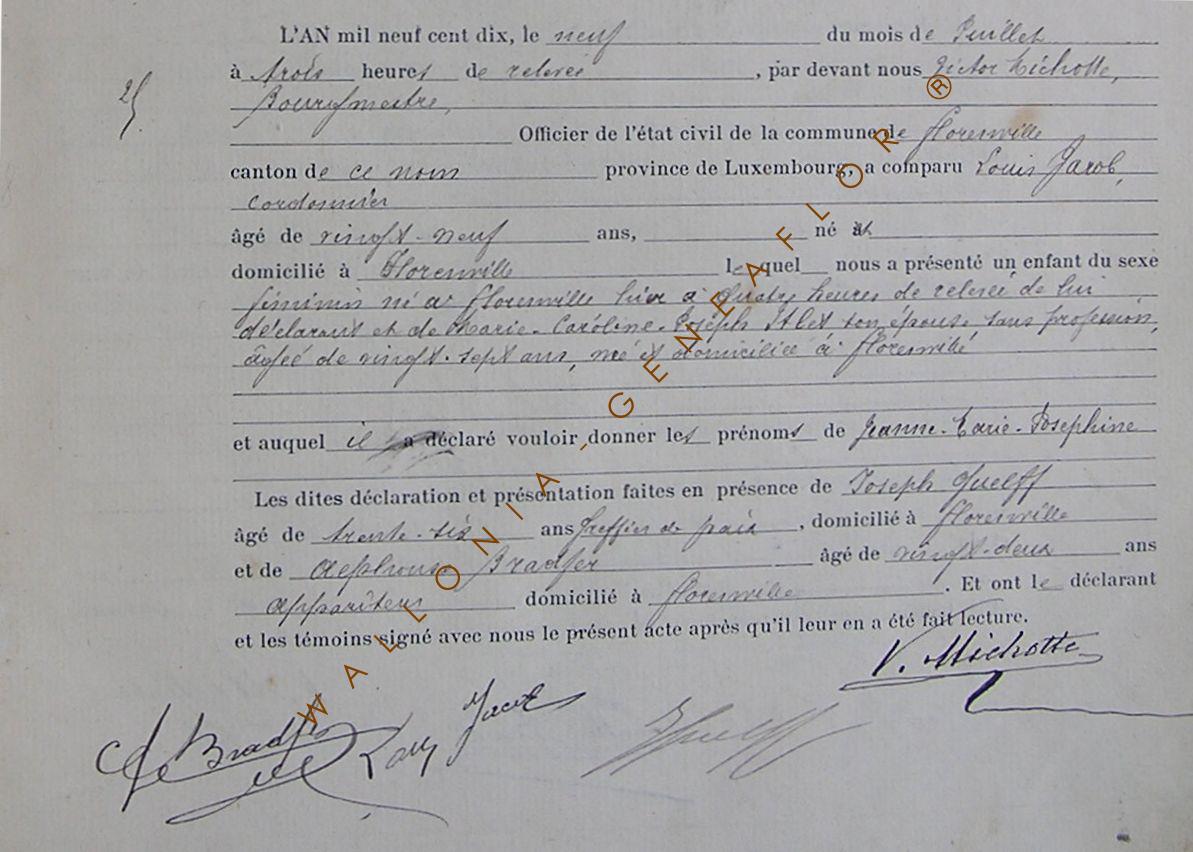 L'AN mil neuf cent dix, le neuf du mois de Juillet
à trois heures de relevée, par devant nous Victor Michotte,
25
Bourgmestre,
Officier de l'état civil de la commune de Florenville
canton de ce nom province de Luxembourg, a comparu Louis Jacob,
cordonnier
âgé de vingt-neuf ans, né à
domicilié à Florenville lequel nous a présenté un enfant du sexe
féminin né à Florenville hier à quatre heures de relevée de lui
déclarant et de Marie-Caroline-Joseph son épouse, sans profession,
âgée de vingt-sept ans, née et domiciliée à Florenville
et auquel il a déclaré vouloir donner les prénoms de Jeanne-Marie-Josephine
Les dites déclaration et présentation faites en présence de Joseph Guelff
âgé de trente-six ans greffier de paix, domicilié à Florenville
et de Alphonse Bradfer âgé de vingt-deux ans
appariteur domicilié à Florenville. Et ont le déclarant
et les témoins signé avec nous le présent acte après qu'il leur en a été fait lecture.
V. Michotte
Bradfer Louis Jacob JGuelff
WALLONIA - GENEAFLOR ®